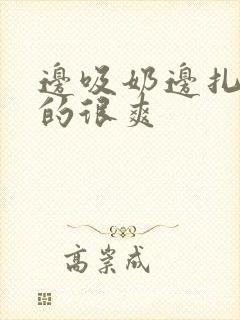 邊吸奶邊扎
的很爽
高崇成